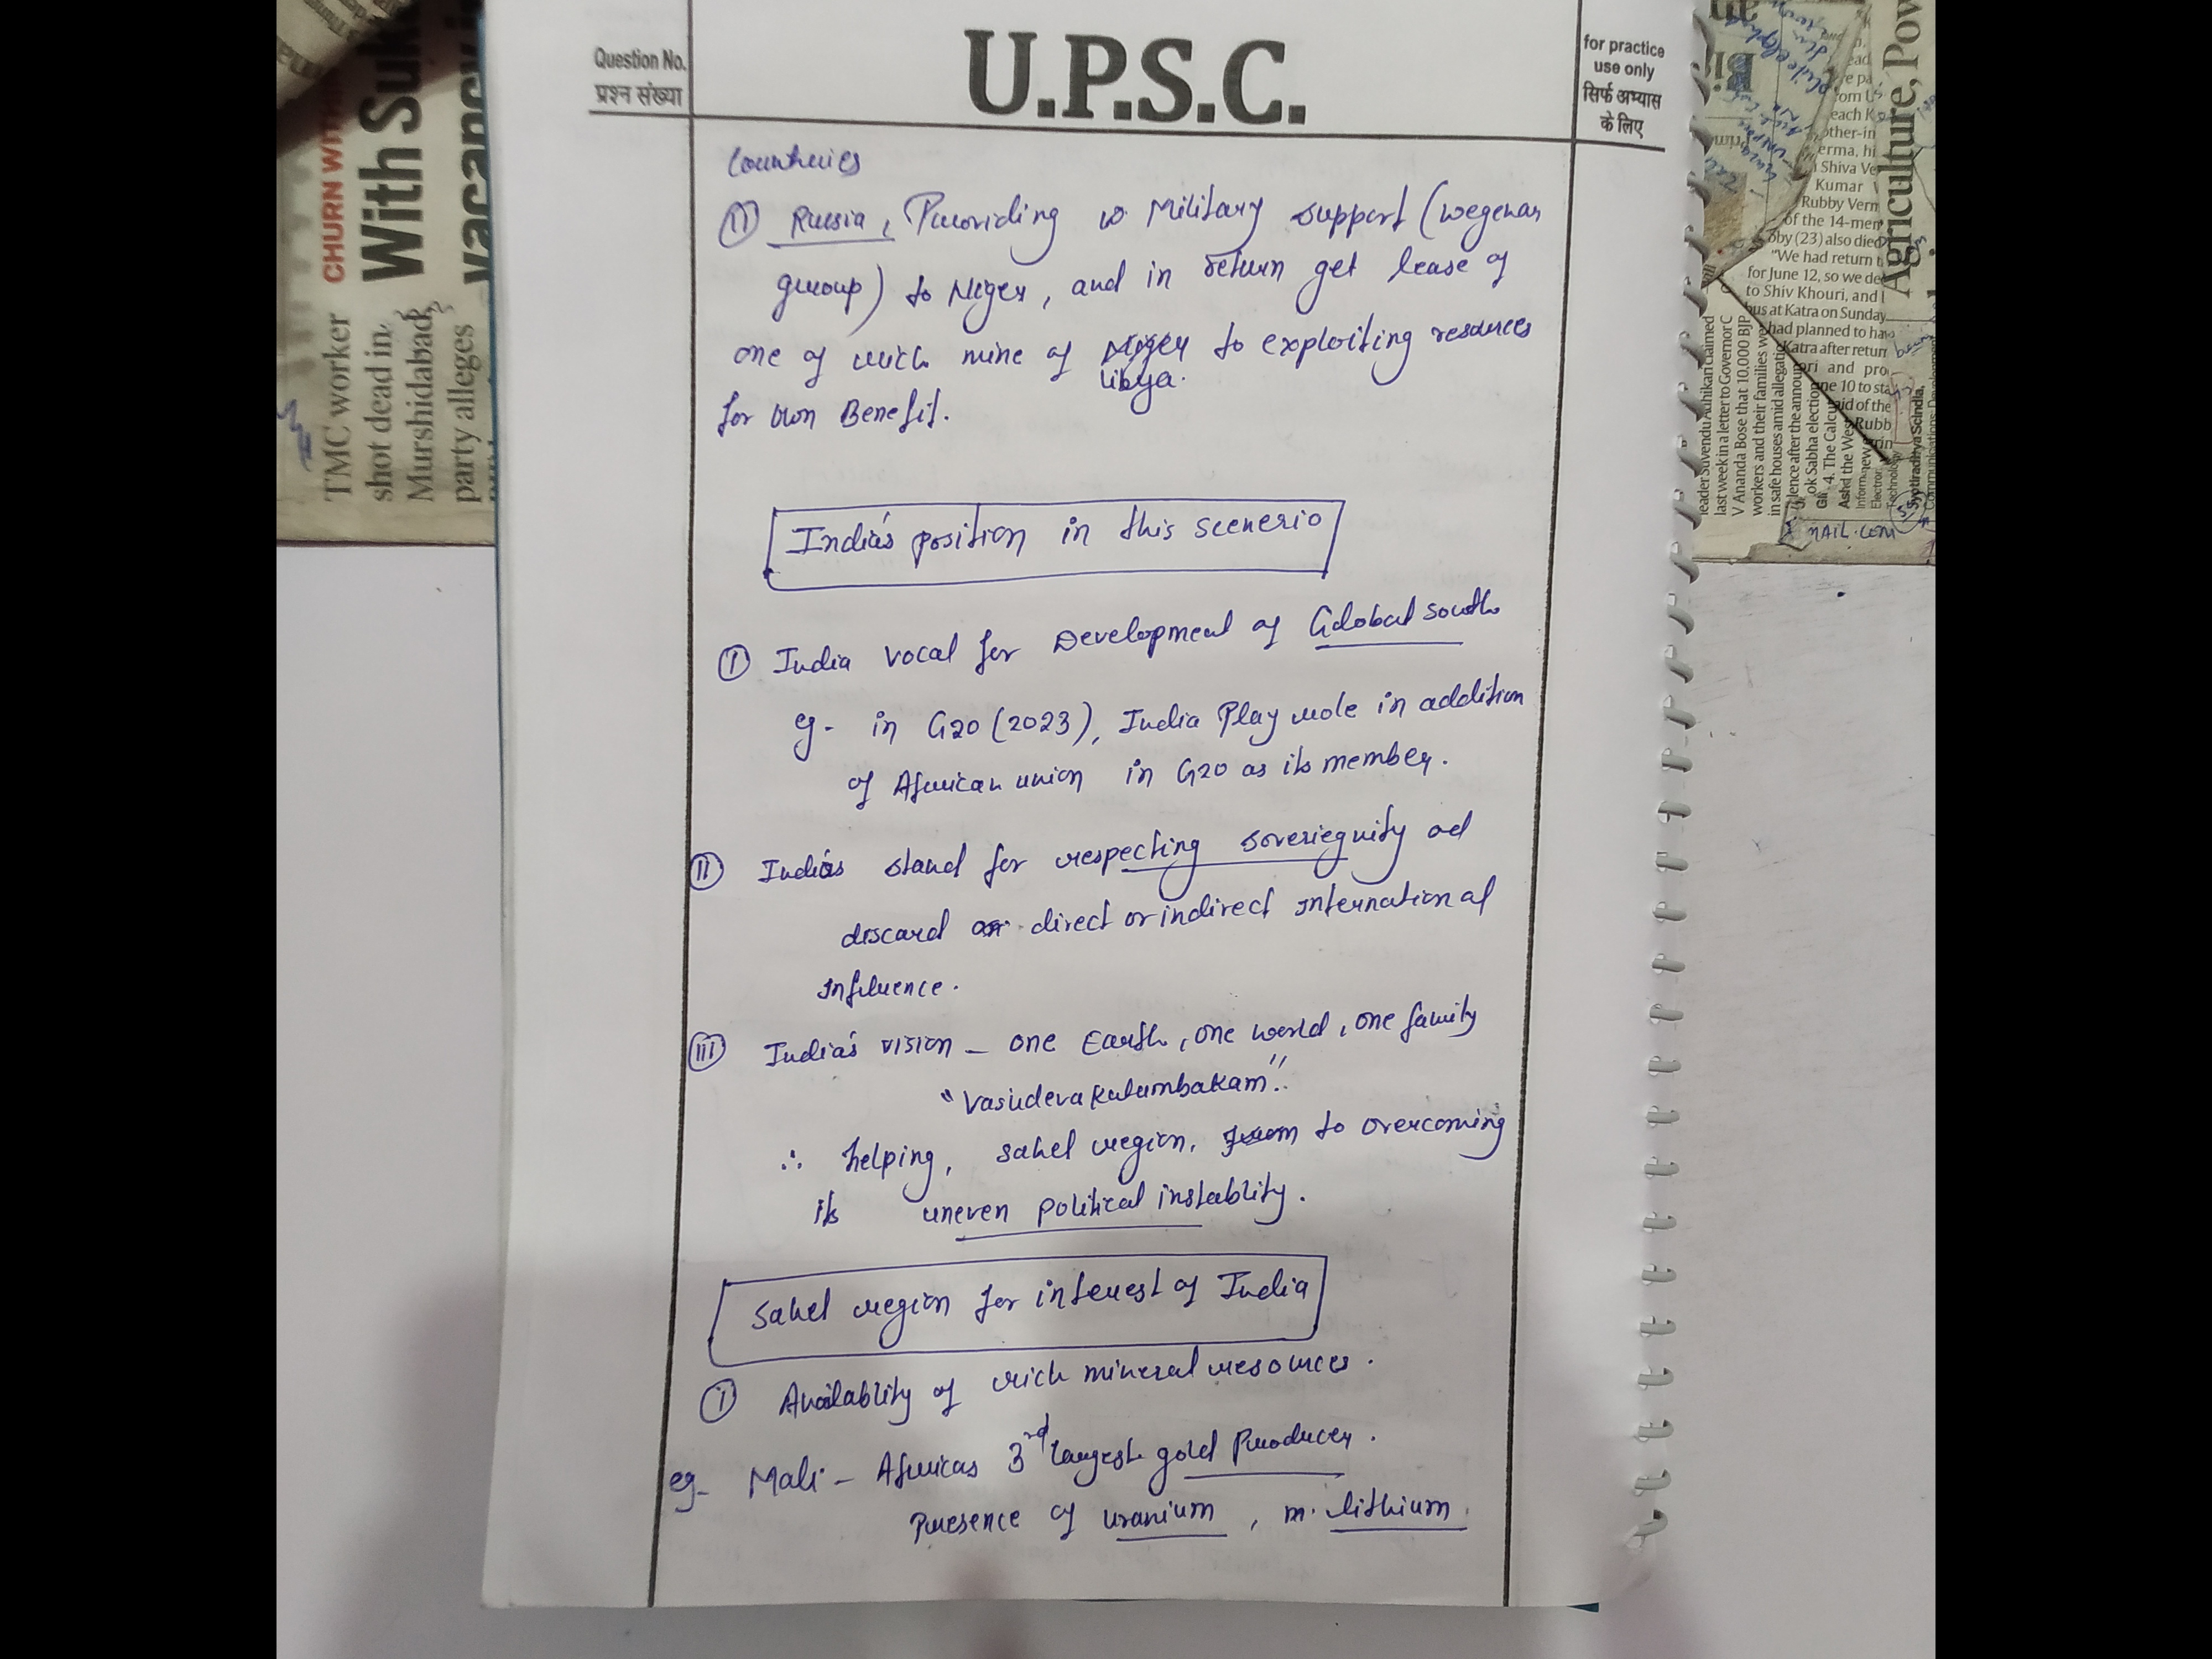 Question No.
प्रश्न संख्या
U.P.S.C.
for practice
use only
सिर्फ अभ्यास
के लिए
Countries
(II) Russia, Providing Military support (wegenar
group) to Niger, and in return get lease of
one of rich mine of Niger to exploiting resources
Libya.
for own Benefit.
India's position in this scenerio
(I) India vocal for Development of Global south
eg- in G20 (2023), India Play role in addition
of African union in G20 as its member.
(II) India's stand for respecting soveriegnity ad
discard direct or indirect international
influence.
(III) India's vision - one Earth, one world, one family
"Vasudeva Kutumbakam".
∴ helping, sahel region, from to overcoming
its uneven political instablity.
Sahel region for interest of India
(I) Availablity of rich mineral resources.
eg- Mali - Africas 3rd largest gold Producer.
Presence of uranium, m. lithium.
CHURN WITH
With Suk
vacancy
TMC worker
shot dead in
Murshidabad,
party alleges
Agriculture, Pow
each K
other-in
erma, hi
Shiva Ve
Kumar
Rubby Vern
of the 14-mem
oby (23) also died
"We had return
for June 12, so we de
to Shiv Khouri, and
bus at Katra on Sunday
had planned to hav
Katra after return
ori and pro
ne 10 to sta
aid of the
Rubb
leader Suvendu Adhikari claimed
last week in a letter to Governor C
V Ananda Bose that 10,000 BJP
workers and their families we
in safe houses amid allegati
lence after the announ
ok Sabha election
4. The Calcut
Ashd the Wes
Jyotiraditya Scindia,
MAIL.COM